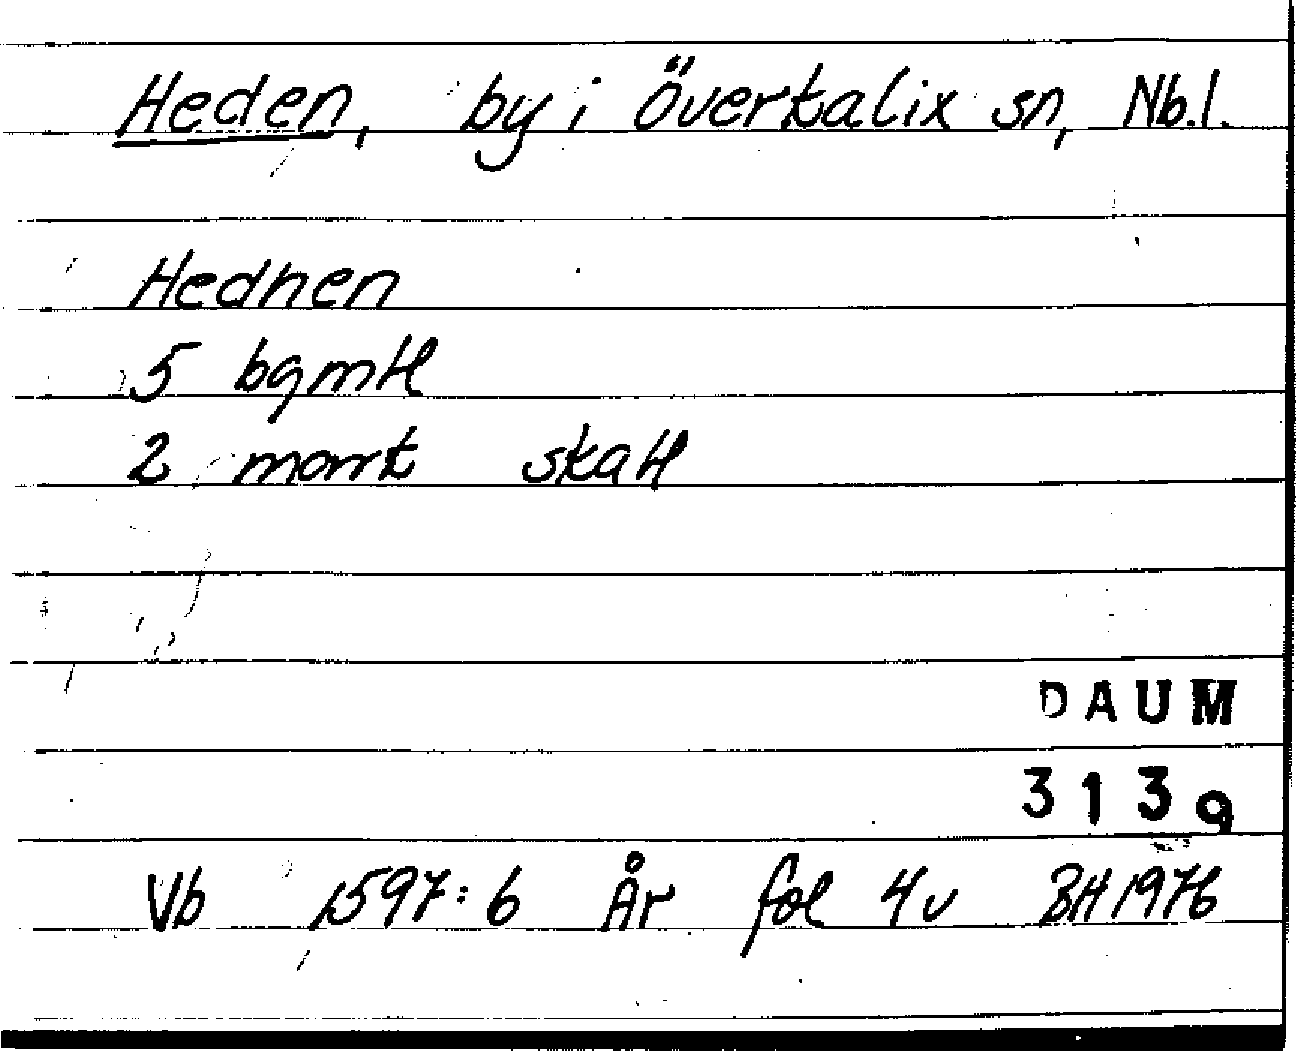 Heden, by i Överkalix sn, Nb.l.
Hednen
5 bgmtl
2 mantt skatt
DAUM
3139
Vb 1597:6 År fol 4v BH 1976